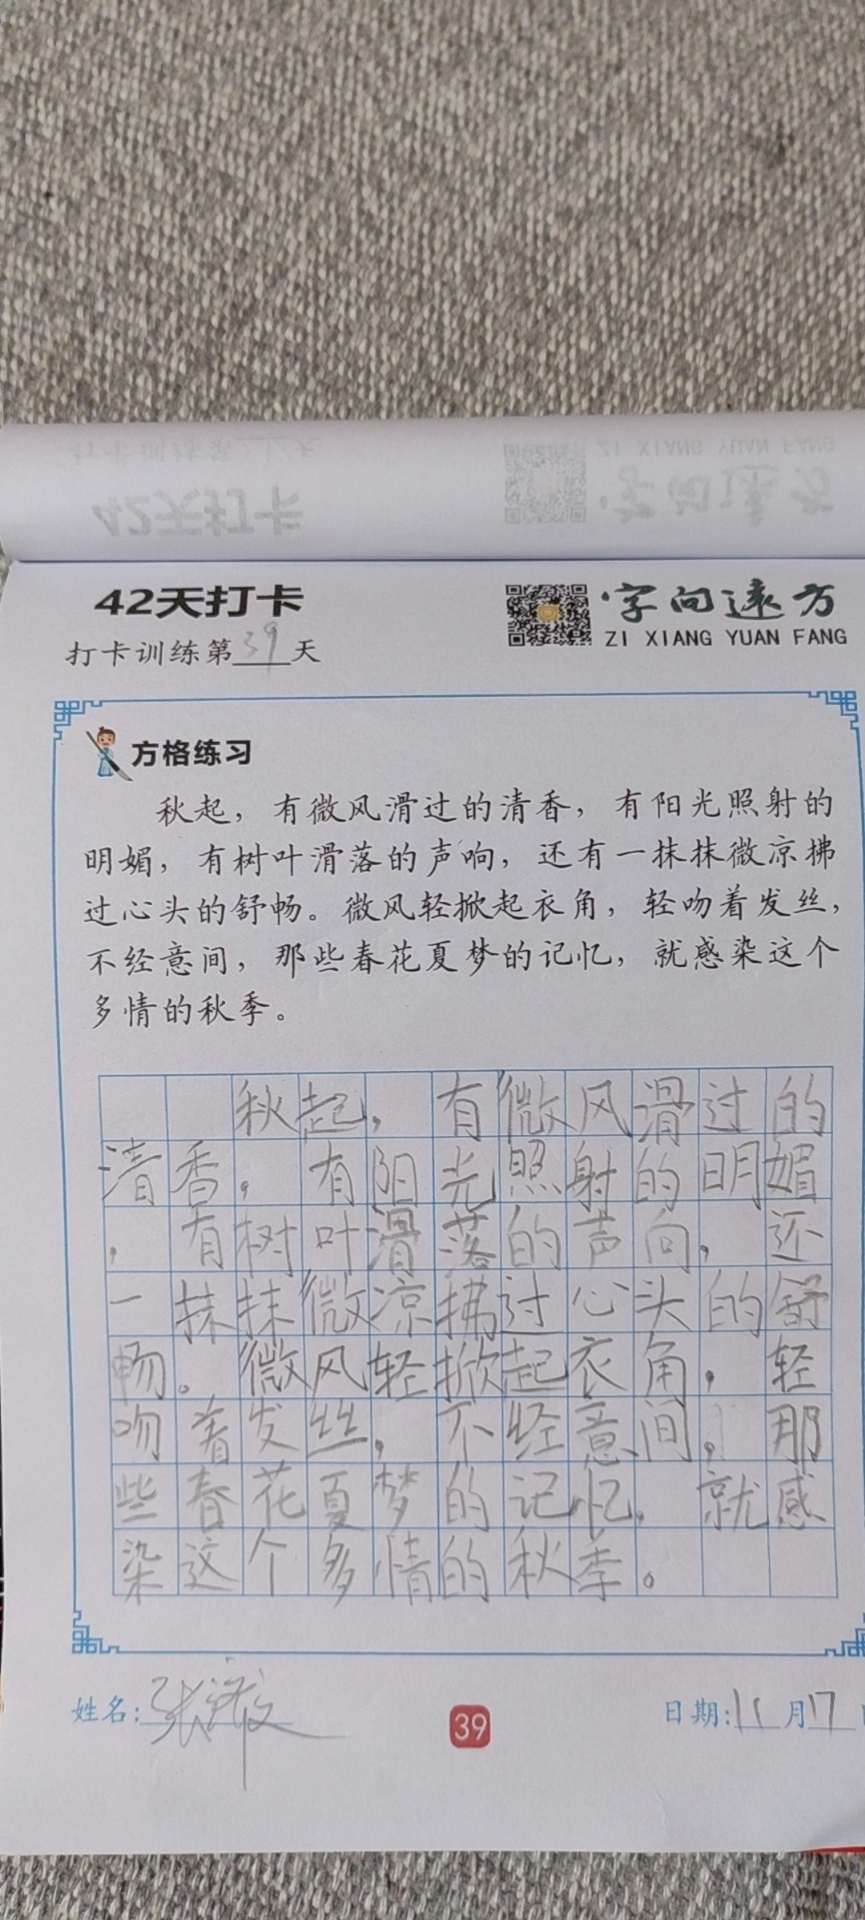 42天打卡
字向远方
ZI XIANG YUAN FANG
打卡训练第39天
方格练习
秋起，有微风滑过的清香，有阳光照射的
明媚，有树叶滑落的声响，还有一抹抹微凉拂
过心头的舒畅。微风轻掀起衣角，轻吻着发丝，
不经意间，那些春花夏梦的记忆，就感染这个
多情的秋季。
秋起，有微风滑过的
清香，有阳光照射的明媚
，有树叶滑落的声向，还
一抹抹微凉拂过心头的舒
畅。微风轻掀起衣角，轻
吻着发丝，不经意间，那
些春花夏梦的记忆，就感
染这个多情的秋季。
姓名：张
39
日期：11月17日